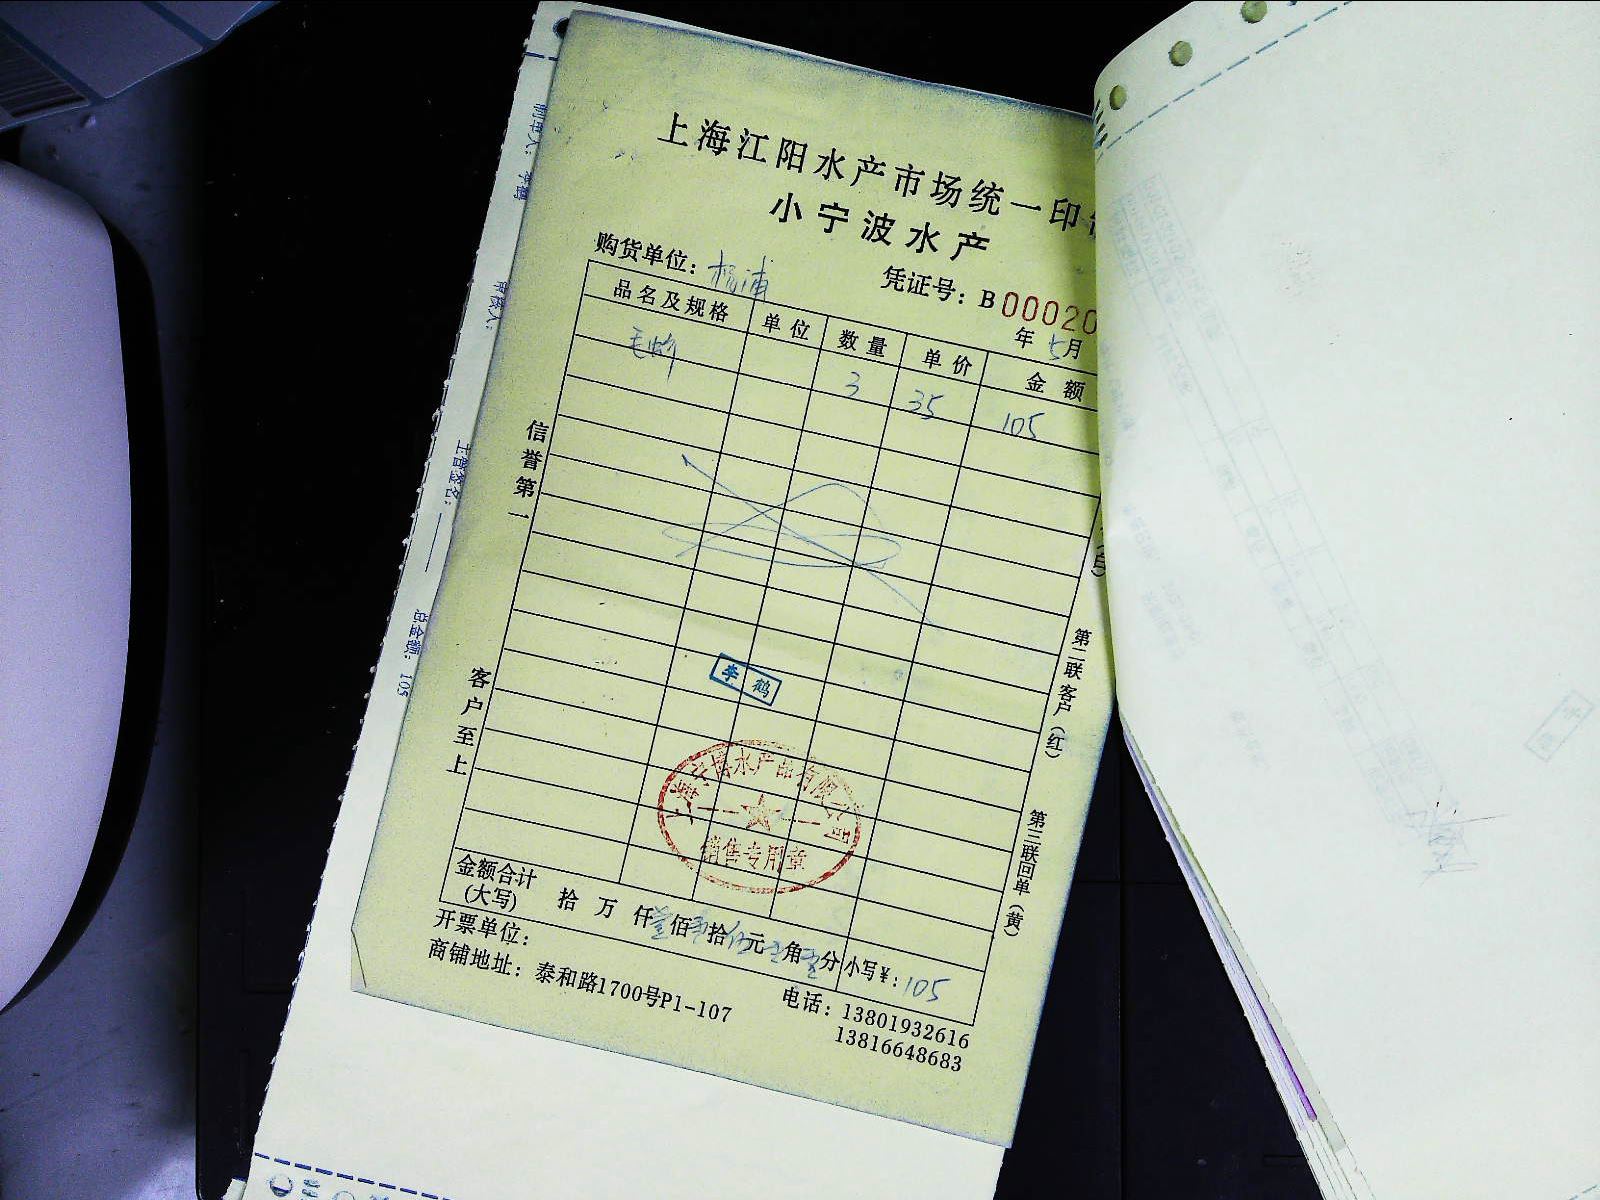 上海江阳水产市场统一印
小宁波水产
购货单位：杨浦
凭证号：B 00020
年 5月
品名及规格 单位 数量 单价 金额
毛蚶 3 35 105
信誉第一
客户至上
李鹤
上海宁博水产品有限公司
销售专用章
第二联客户（红）
第三联回单（黄）
金额合计(大写) 拾 万 仟 壹 佰 零 拾 伍 元 零 角 零 分 小写¥：105
开票单位：
商铺地址：泰和路1700号P1-107
电话：13801932616
13816648683
制单人：李鹤
审校人：
主管签名：
总金额：105